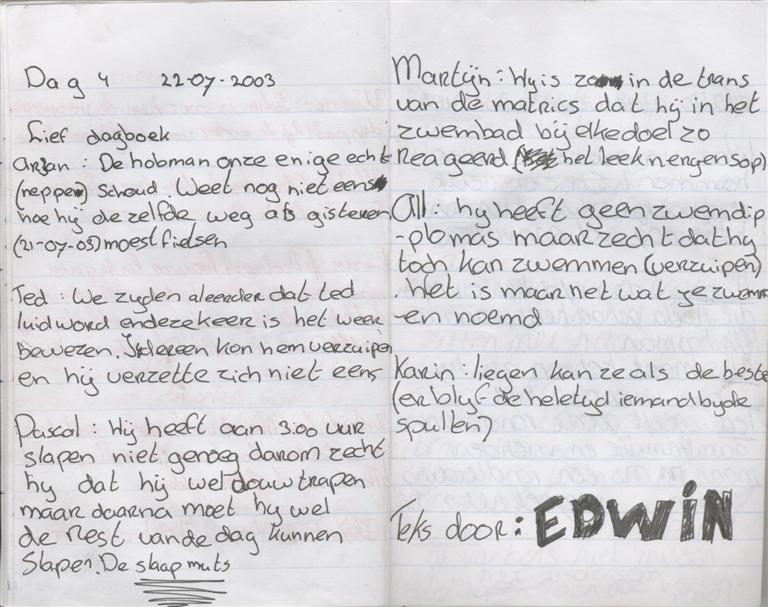 Dag 4 22-07-2003
Lief dagboek
Arjan : De hobman onze enige echte
(neppe) Schoud Weet nog niet eens
hoe hij de zelfde weg als gisteren
(21-07-03) moest fietsen
Ted : We zijden aleerder dat ted
luid word en deze keer is het weer
bewezen. Iedereen kon hem verzuipen
en hij verzette zich niet eens
Pascal : Hij heeft aan 3:00 uur
slapen niet genoeg darom zecht
hy dat hij wel douw trapen
maar daarna moet hy wel
de Rest van de dag kunnen
Slapen. De slaapmuts
Martijn : Hij is zo in de trans
van de matrics dat hij in het
zwembad bij elke doel zo
Reageerd (het leek nergens op)
All : hy heeft geen zwemdip
-plomas maar zecht dat hy
toch kan zwemmen (verzuipen)
. Het is maar net wat je zwemm
-en noemd
Karin : liegen kan ze als de beste
(er blyf de heletyd iemand by de
spullen?)
Teks door : EDWiN